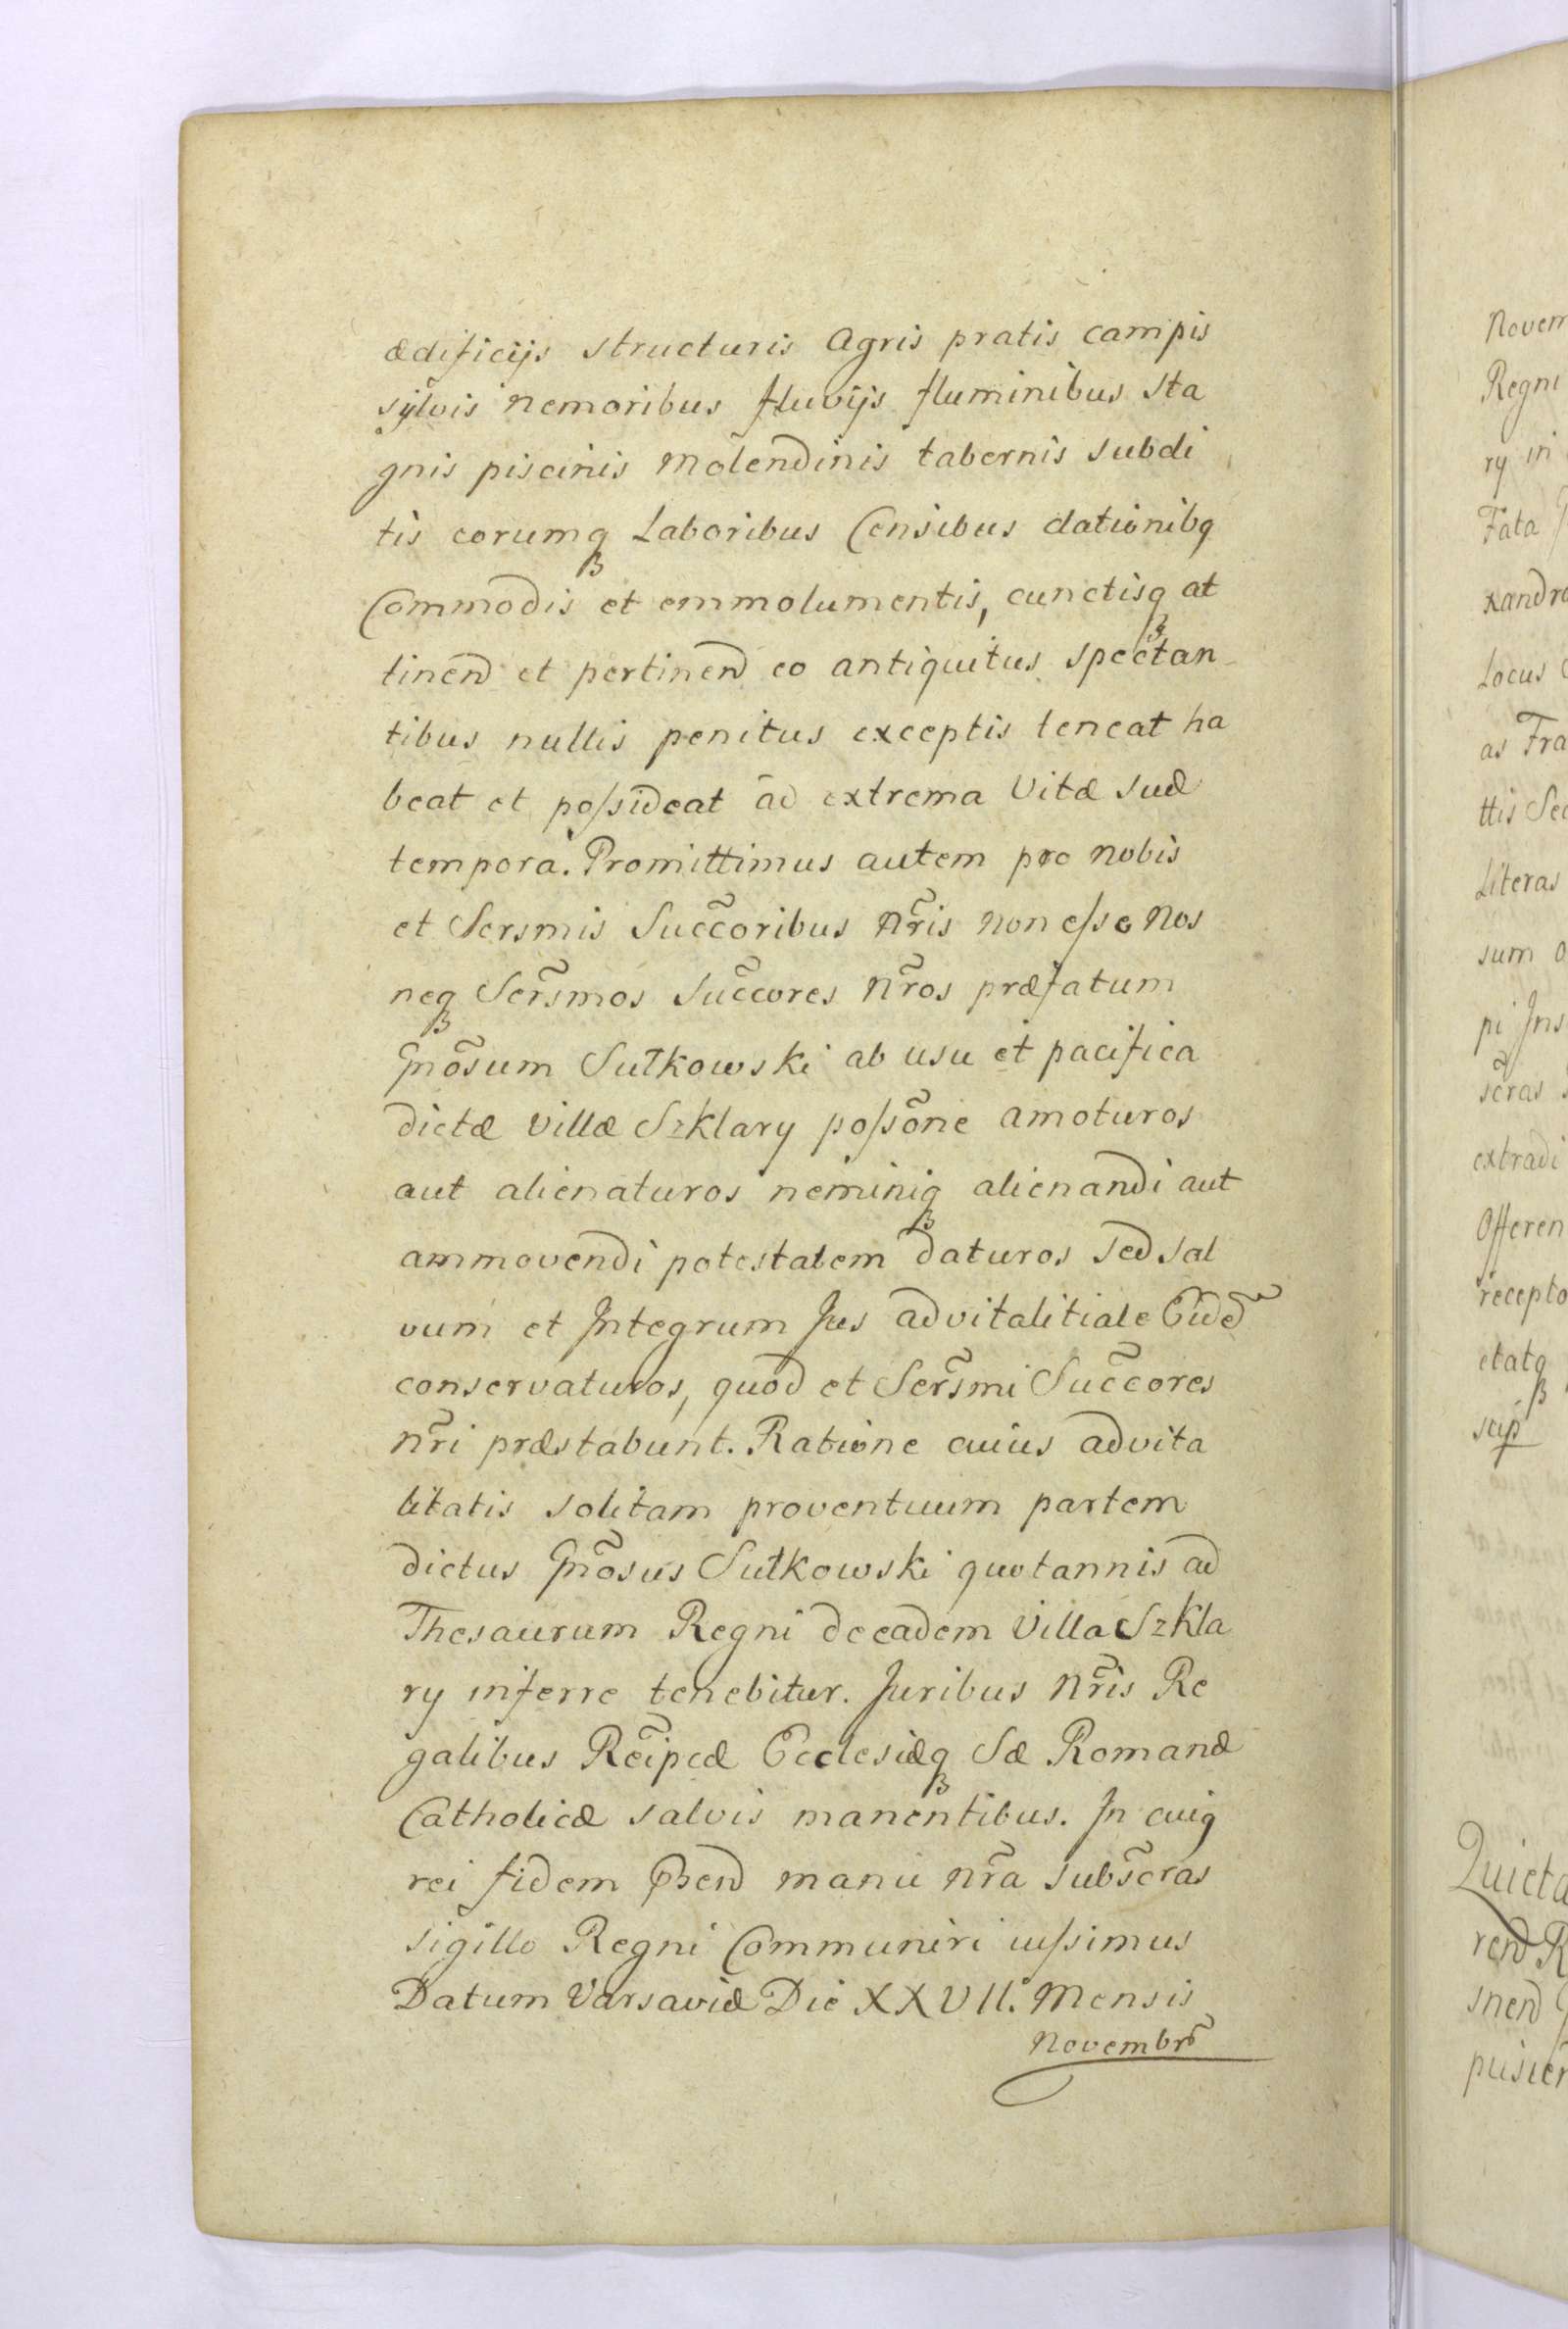 ædificijs structuris Agris pratis campis
sylvis nemoribus fluvijs fluminibus sta
gnis piscinis molendinis tabernis subdi
tis eorumq Laboribus Censibus dationibq
Commodis et emmolumentis, cunctisq at
tinend et pertinend eo antiquitus spectan
tibus nullis penitus exceptis teneat ha
beat et possideat ad extrema vitæ suæ
tempora. Promittimus autem pro nobis
et Sersmis Succoribus nris non esse nos
neq Sersmos Succores nros præfatum
Gnosum Sułkowski ab usu et pacifica
dictæ villæ Szklary possone amoturos
aut alienaturos neminiq alienandi aut
ammovendi potestatem daturos sed sal
vum et Integrum Jus advitalitiale Eid
conservaturos, quod et Sersmi Succores
nri præstabunt. Ratione cuius advita
litatis solitam proventuum partem
dictus Gnosus Sułkowski quotannis ad
Thesaurum Regni de eadem villa Szkla
ry inferre tenebitur. Juribus nris Re
galibus Reipcæ Ecclesiæq Sæ Romanæ
Catholicæ salvis manentibus. In cuiq
rei fidem pnd manu nra subscras
sigillo Regni Communiri iussimus
Datum Varsaviæ Die XXVII. Mensis
Novembr
Novem
Regni
ry in
Fata
xandro
Locus
as Fra
ttis Sec
Literas
sum o
pi Ins
scras
extradi
Offeren
recepto
etatq
scip
Quieta
rend R
snend
pisier